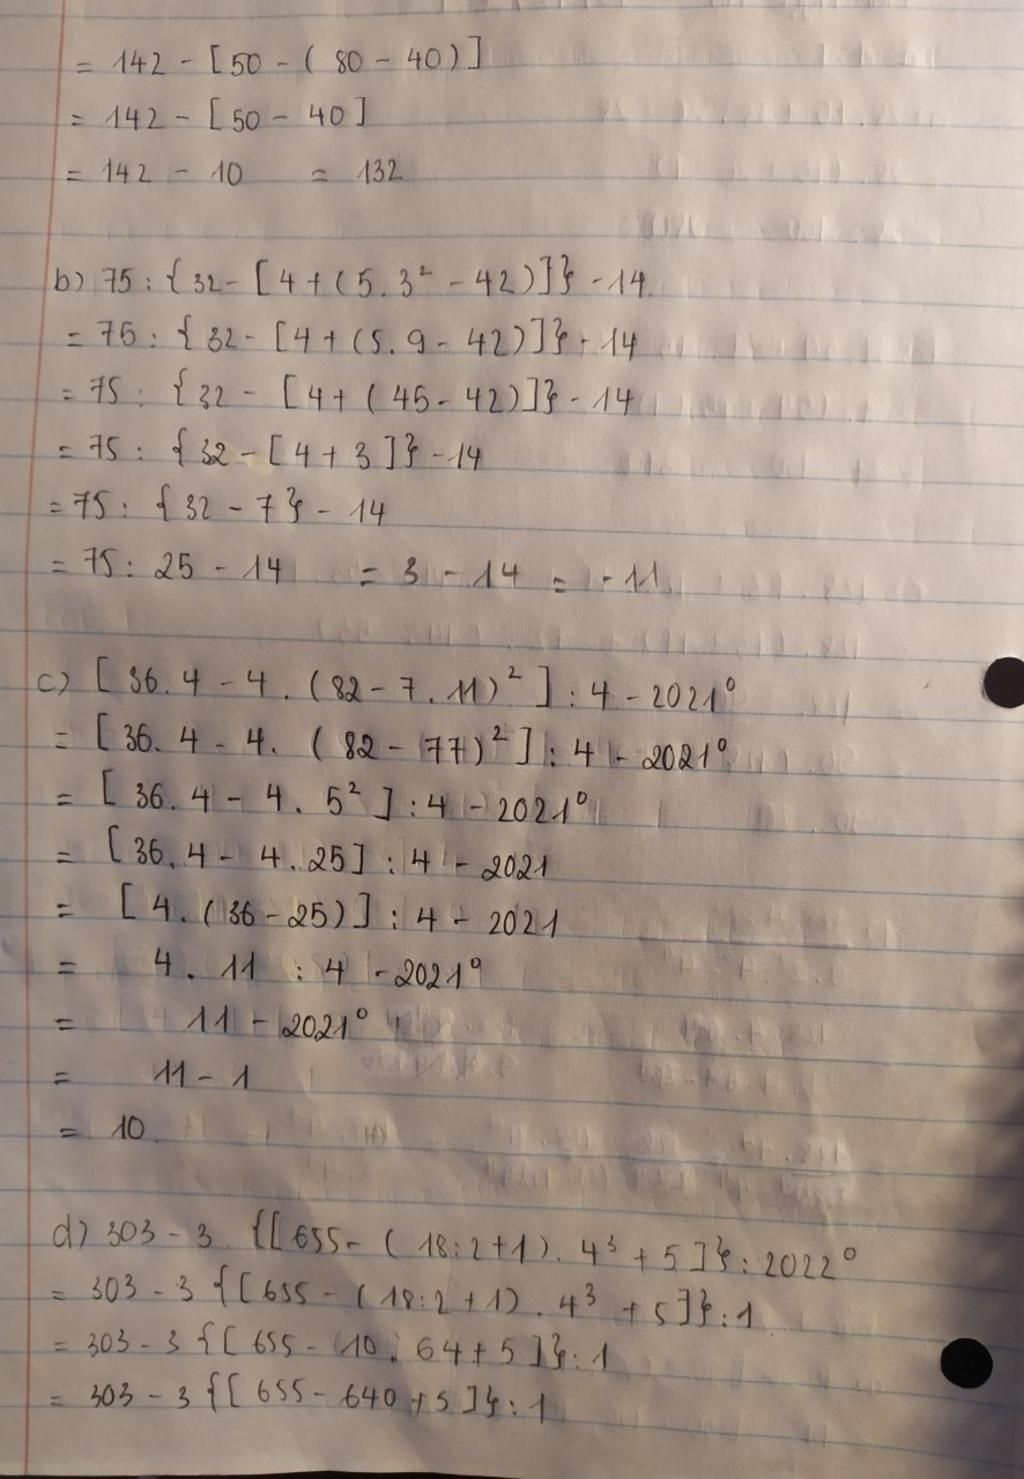 = 142 - [50 - ( 80 - 40)]
= 142 - [50 - 40]
= 142 - 10 = 132
b) 75 : { 32 - [4 + (5.3² - 42)]} - 14
= 75 : { 32 - [4 + (5.9 - 42)]} - 14
= 75 : { 32 - [4 + ( 45 - 42)]} - 14
= 75 : { 32 - [4 + 3]} - 14
= 75 : { 32 - 7} - 14
= 75 : 25 - 14 = 3 - 14 = -11
c) [36.4 - 4. (82 - 7.11)²] : 4 - 2021⁰
= [36.4 - 4. (82 - 77)²] : 4 - 2021⁰
= [36.4 - 4. 5²] : 4 - 2021⁰
= [36.4 - 4.25] : 4 - 2021
= [4. (36 - 25)] : 4 - 2021
= 4. 11 : 4 - 2021⁰
= 11 - 2021⁰
= 11 - 1
= 10
d) 303 - 3 {[655 - ( 18:2+1). 4³ + 5]} : 2022⁰
= 303 - 3 {[655 - (18:2 + 1). 4³ + 5]} : 1
= 303 - 3 {[655 - 10. 64 + 5]} : 1
= 303 - 3 {[655 - 640 + 5]} : 1